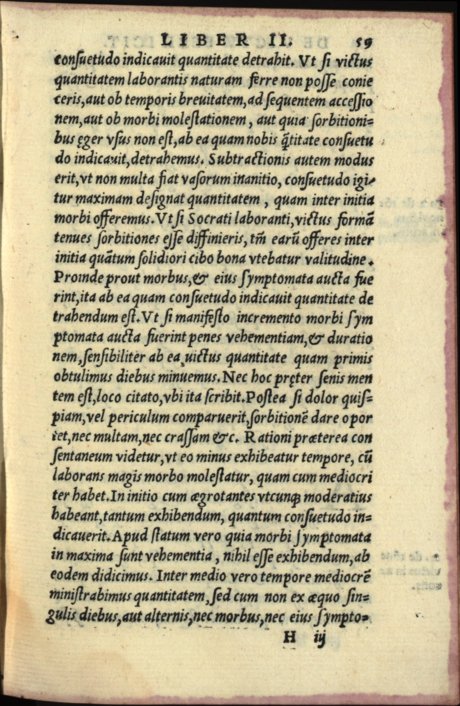 LIBER II. 59
consuetudo indicauit quantitate detrahit. Vt si victus
quantitatem laborantis naturam ferre non posse conie
ceris, aut ob temporis breuitatem, ad sequentem accessio
nem, aut ob morbi molestationem, aut quia sorbitioni=
bus ęger vsus non est, ab ea quam nobis q̃titate consuetu
do indicauit, detrahemus. Subtractionis autem modus
erit, vt non multa fiat vasorum inanitio, consuetudo igi=
tur maximam designat quantitatem, quam inter initia
morbi offeremus. Vt si Socrati laboranti, victus formā
tenues sorbitiones esse diffinieris, tm̄ earū offeres inter
initia quātum solidiori cibo bona vtebatur valitudine.
Proinde prout morbus, & eius symptomata aucta fue
rint, ita ab ea quam consuetudo indicauit quantitate de
trahendum est. Vt si manifesto incremento morbi sym
ptomata aucta fuerint penes vehementiam, & duratio
nem, sensibiliter ab ea uictus quantitate quam primis
obtulimus diebus minuemus. Nec hoc pręter senis men
tem est, loco citato, vbi ita scribit. Postea si dolor quis=
piam, vel periculum comparuerit, sorbitionē dare opor
tet, nec multam, nec crassam &c. Rationi præterea con
sentaneum videtur, vt eo minus exhibeatur tempore, cū
laborans magis morbo molestatur, quam cum mediocri
ter habet. In initio cum ægrotantes vtcunqꝫ moderatius
habeant, tantum exhibendum, quantum consuetudo in=
dicauerit. Apud statum vero quia morbi symptomata
in maxima sunt vehementia, nihil esse exhibendum, ab
eodem didicimus. Inter medio vero tempore mediocrē
ministrabimus quantitatem, sed cum non ex æquo sin=
gulis diebus, aut alternis, nec morbus, nec eius sympto=
H iij